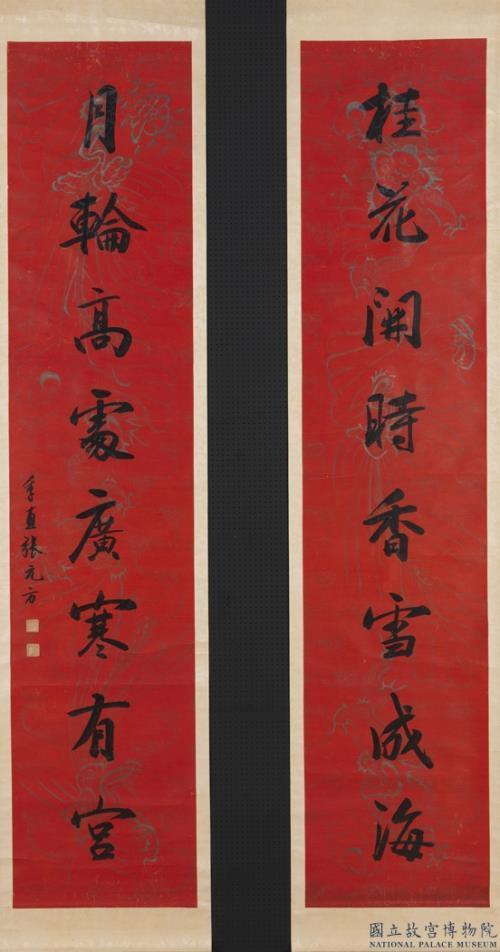 桂花開時香雪成海
月輪高處廣寒有宮
季直張元方
國立故宮博物院
NATIONAL PALACE MUSEUM